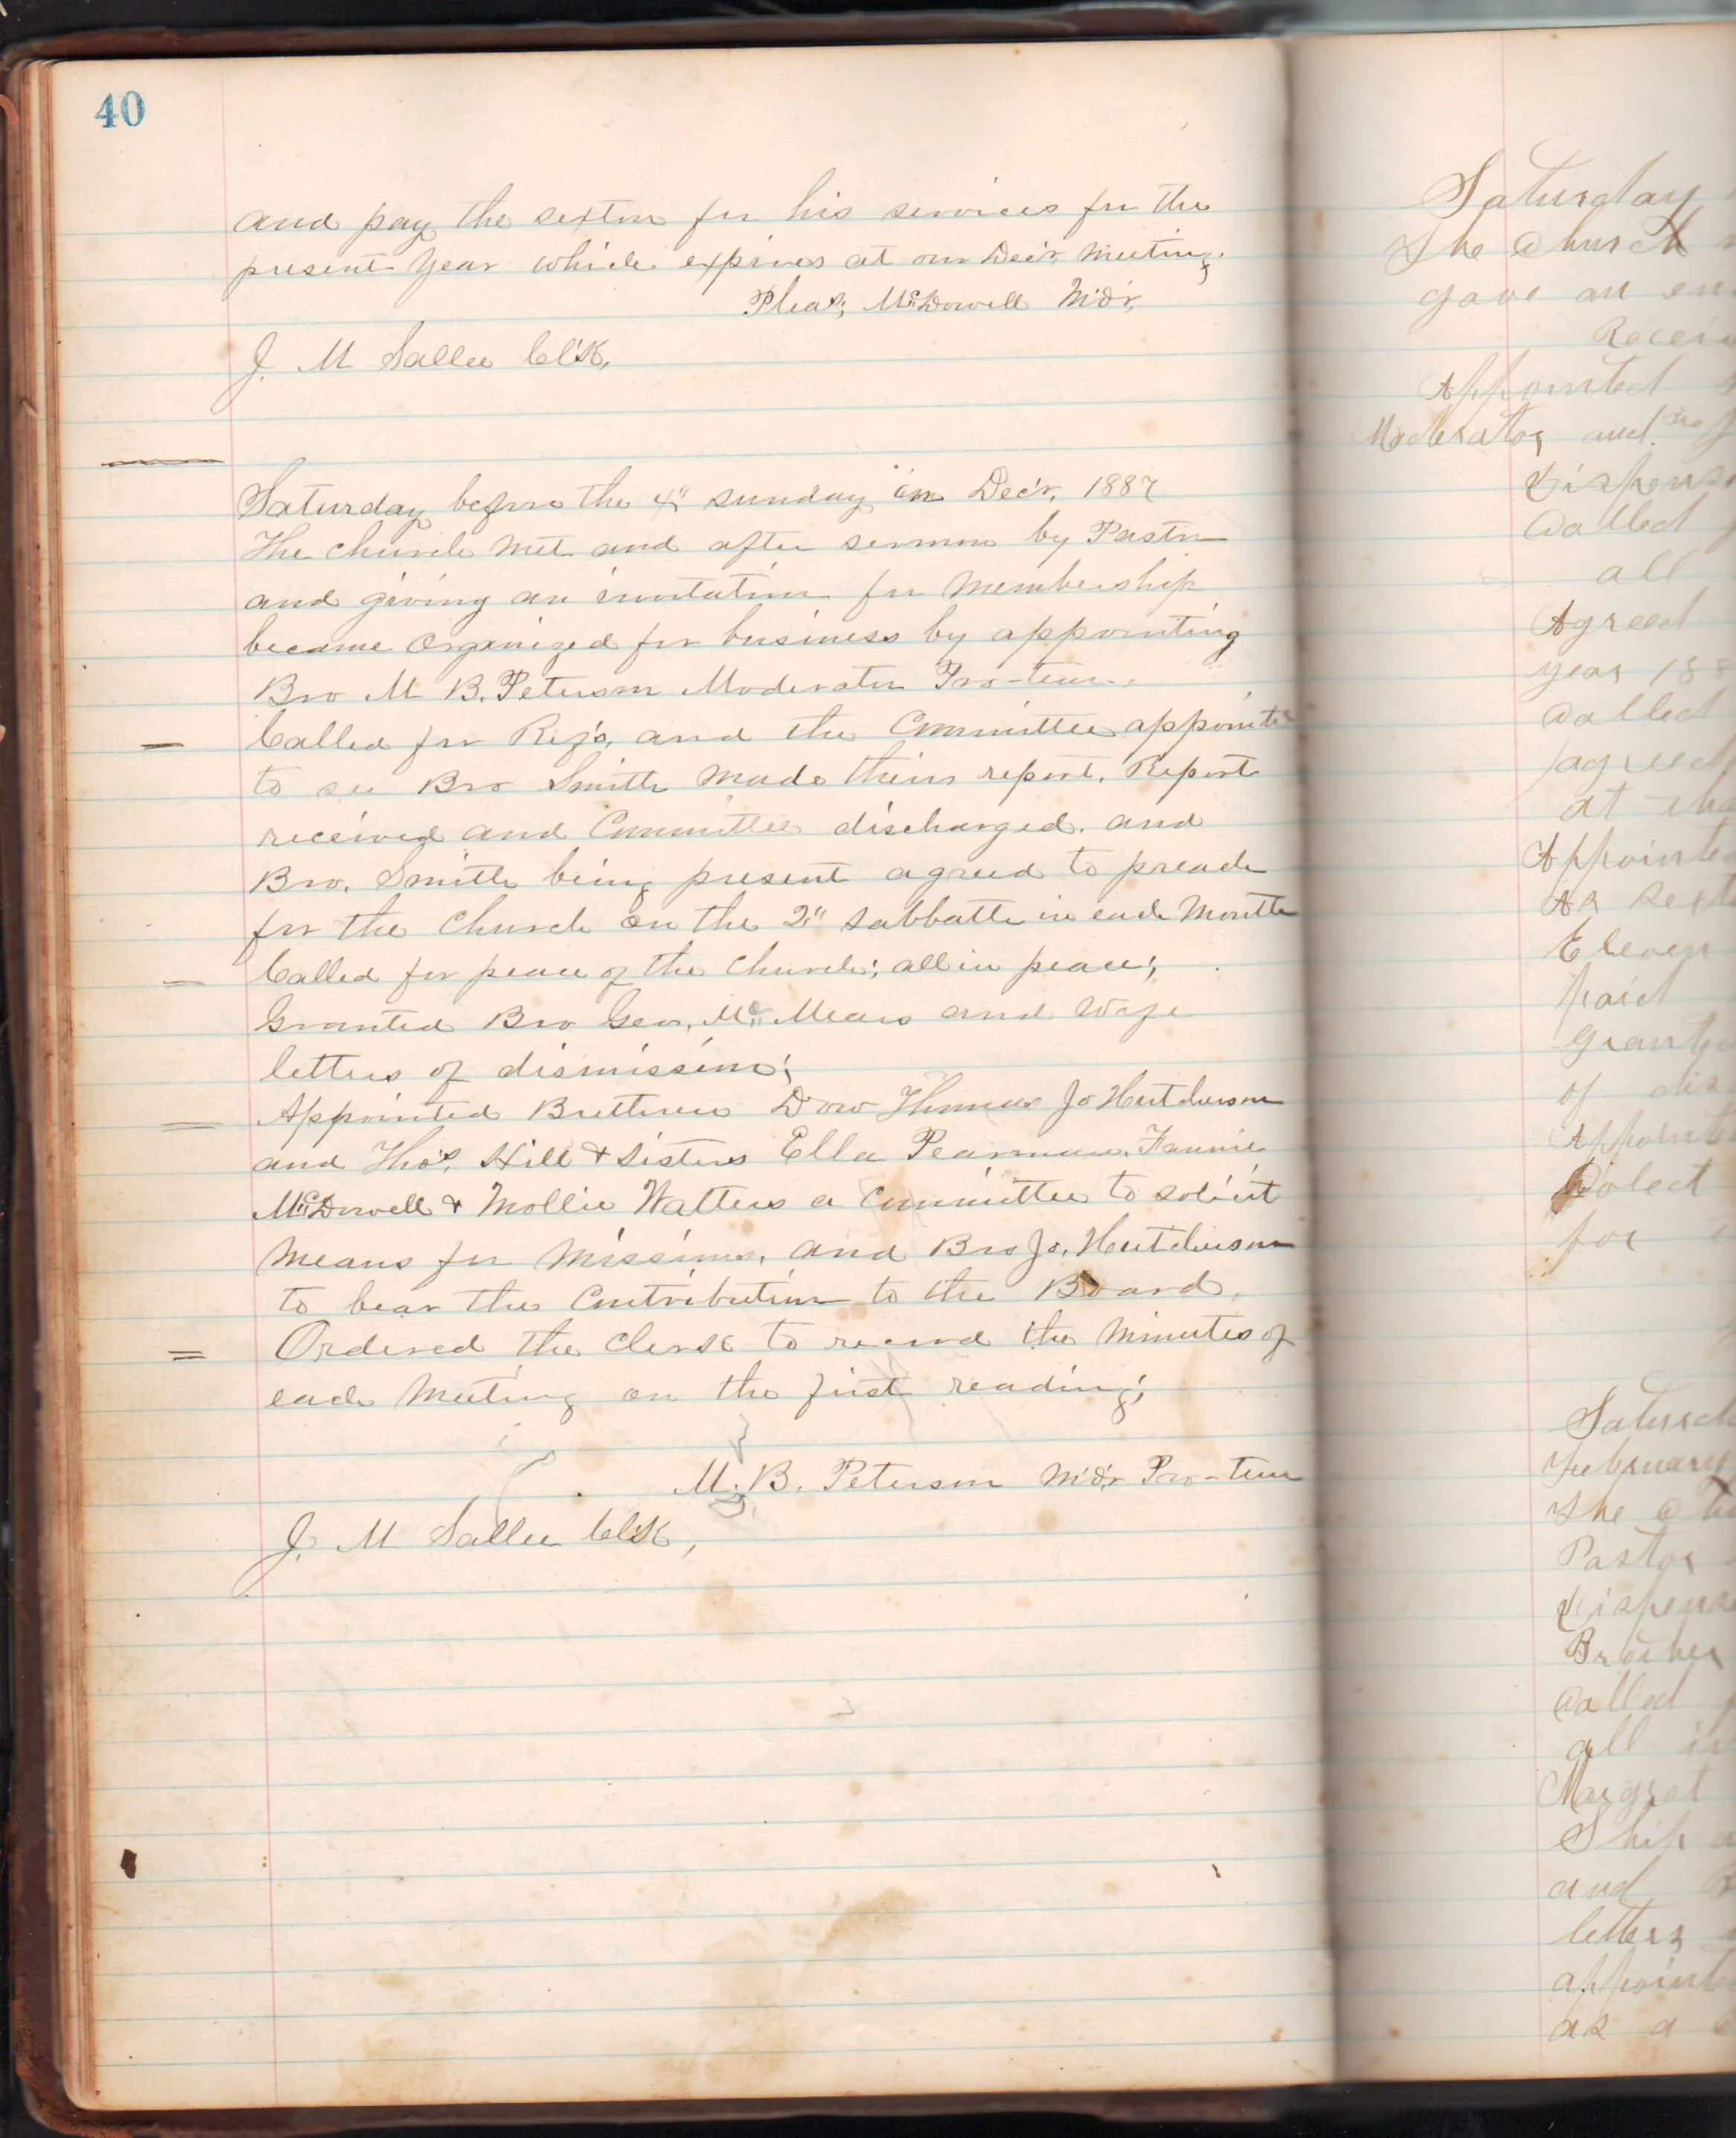 40
and pay the sexton for his services for the
present year which expires at our Dec'r, meeting.
Pleas; McDowell Mo'd'r,
J. M Sallee Cl'k,
Saturday before the 4" sunday in Dec'r, 1887
The church met and after sermon by Pastor
and giving an invitation for Membership
became Organized for business by appointing
Bro M B. Peterson Moderator Pro-tem,
Called for Ref's, and the Committee appointe
to see Bro Smith made their report. Report
received and Committee discharged. and
Bro. Smith being present agreed to preach
for the Church on the 2" sabbath in each Month
Called for peace of the Church; all in peace;
Granted Bro Geo, Mc Mears and Wife
letters of dismission;
Appointed Bretheren Dow Thomas Jo Hutcherson
and Tho's, Hill & Sisters Ella Pearman, Fannie
McDowell & Mollie Watters a Committee to solicit
Means for Missions, and Bro Jo, Hutcherson
to bear the Contribution to the Board,
Ordered the Clerk to record the Minutes of
each Meeting on the first reading;
M. B. Peterson Mo'd'r Pro-tem
J. M Sallee Cl'k,
Saturday
The Church
gave an
Appointed
Moderator and Bro
Called
all
Agreed
year 188
Called
agreed
at
As
Eleven
paid
of dis
for
February
The
Pastor
Brother
Called
all in
Margret
Ship
and
letters
as a